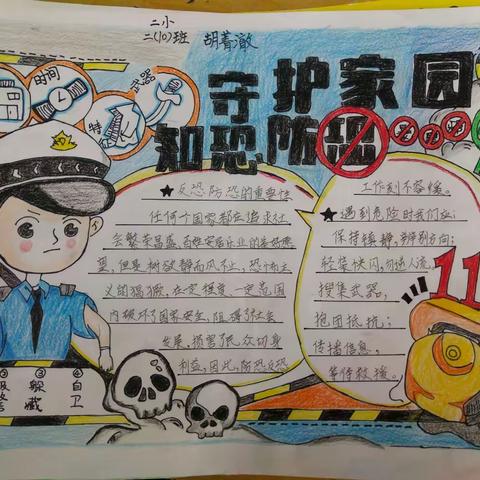 二小
二(10)班 胡着澈
时间
武器
特
守护家园
知恐防恐
★反恐防恐的重要性
任何个国家都在追求社
会繁荣昌盛,百姓安居乐业的美好愿
望,但是树欲静而风不止,恐怖主
义的猖獗,在一定程度、一定范围
内破坏了国家安全,阻碍了社会
发展,损害了民众切身
利益,因此,防恐反恐
工作刻不容缓。
★遇到危险时我们应:
保持镇静,辨别方向;
轻装快闪,勿逆人流,
搜集武器,
抱团抵抗;
传播信息,
等待救援。
11
② ③ ④
报警 躲藏 自卫